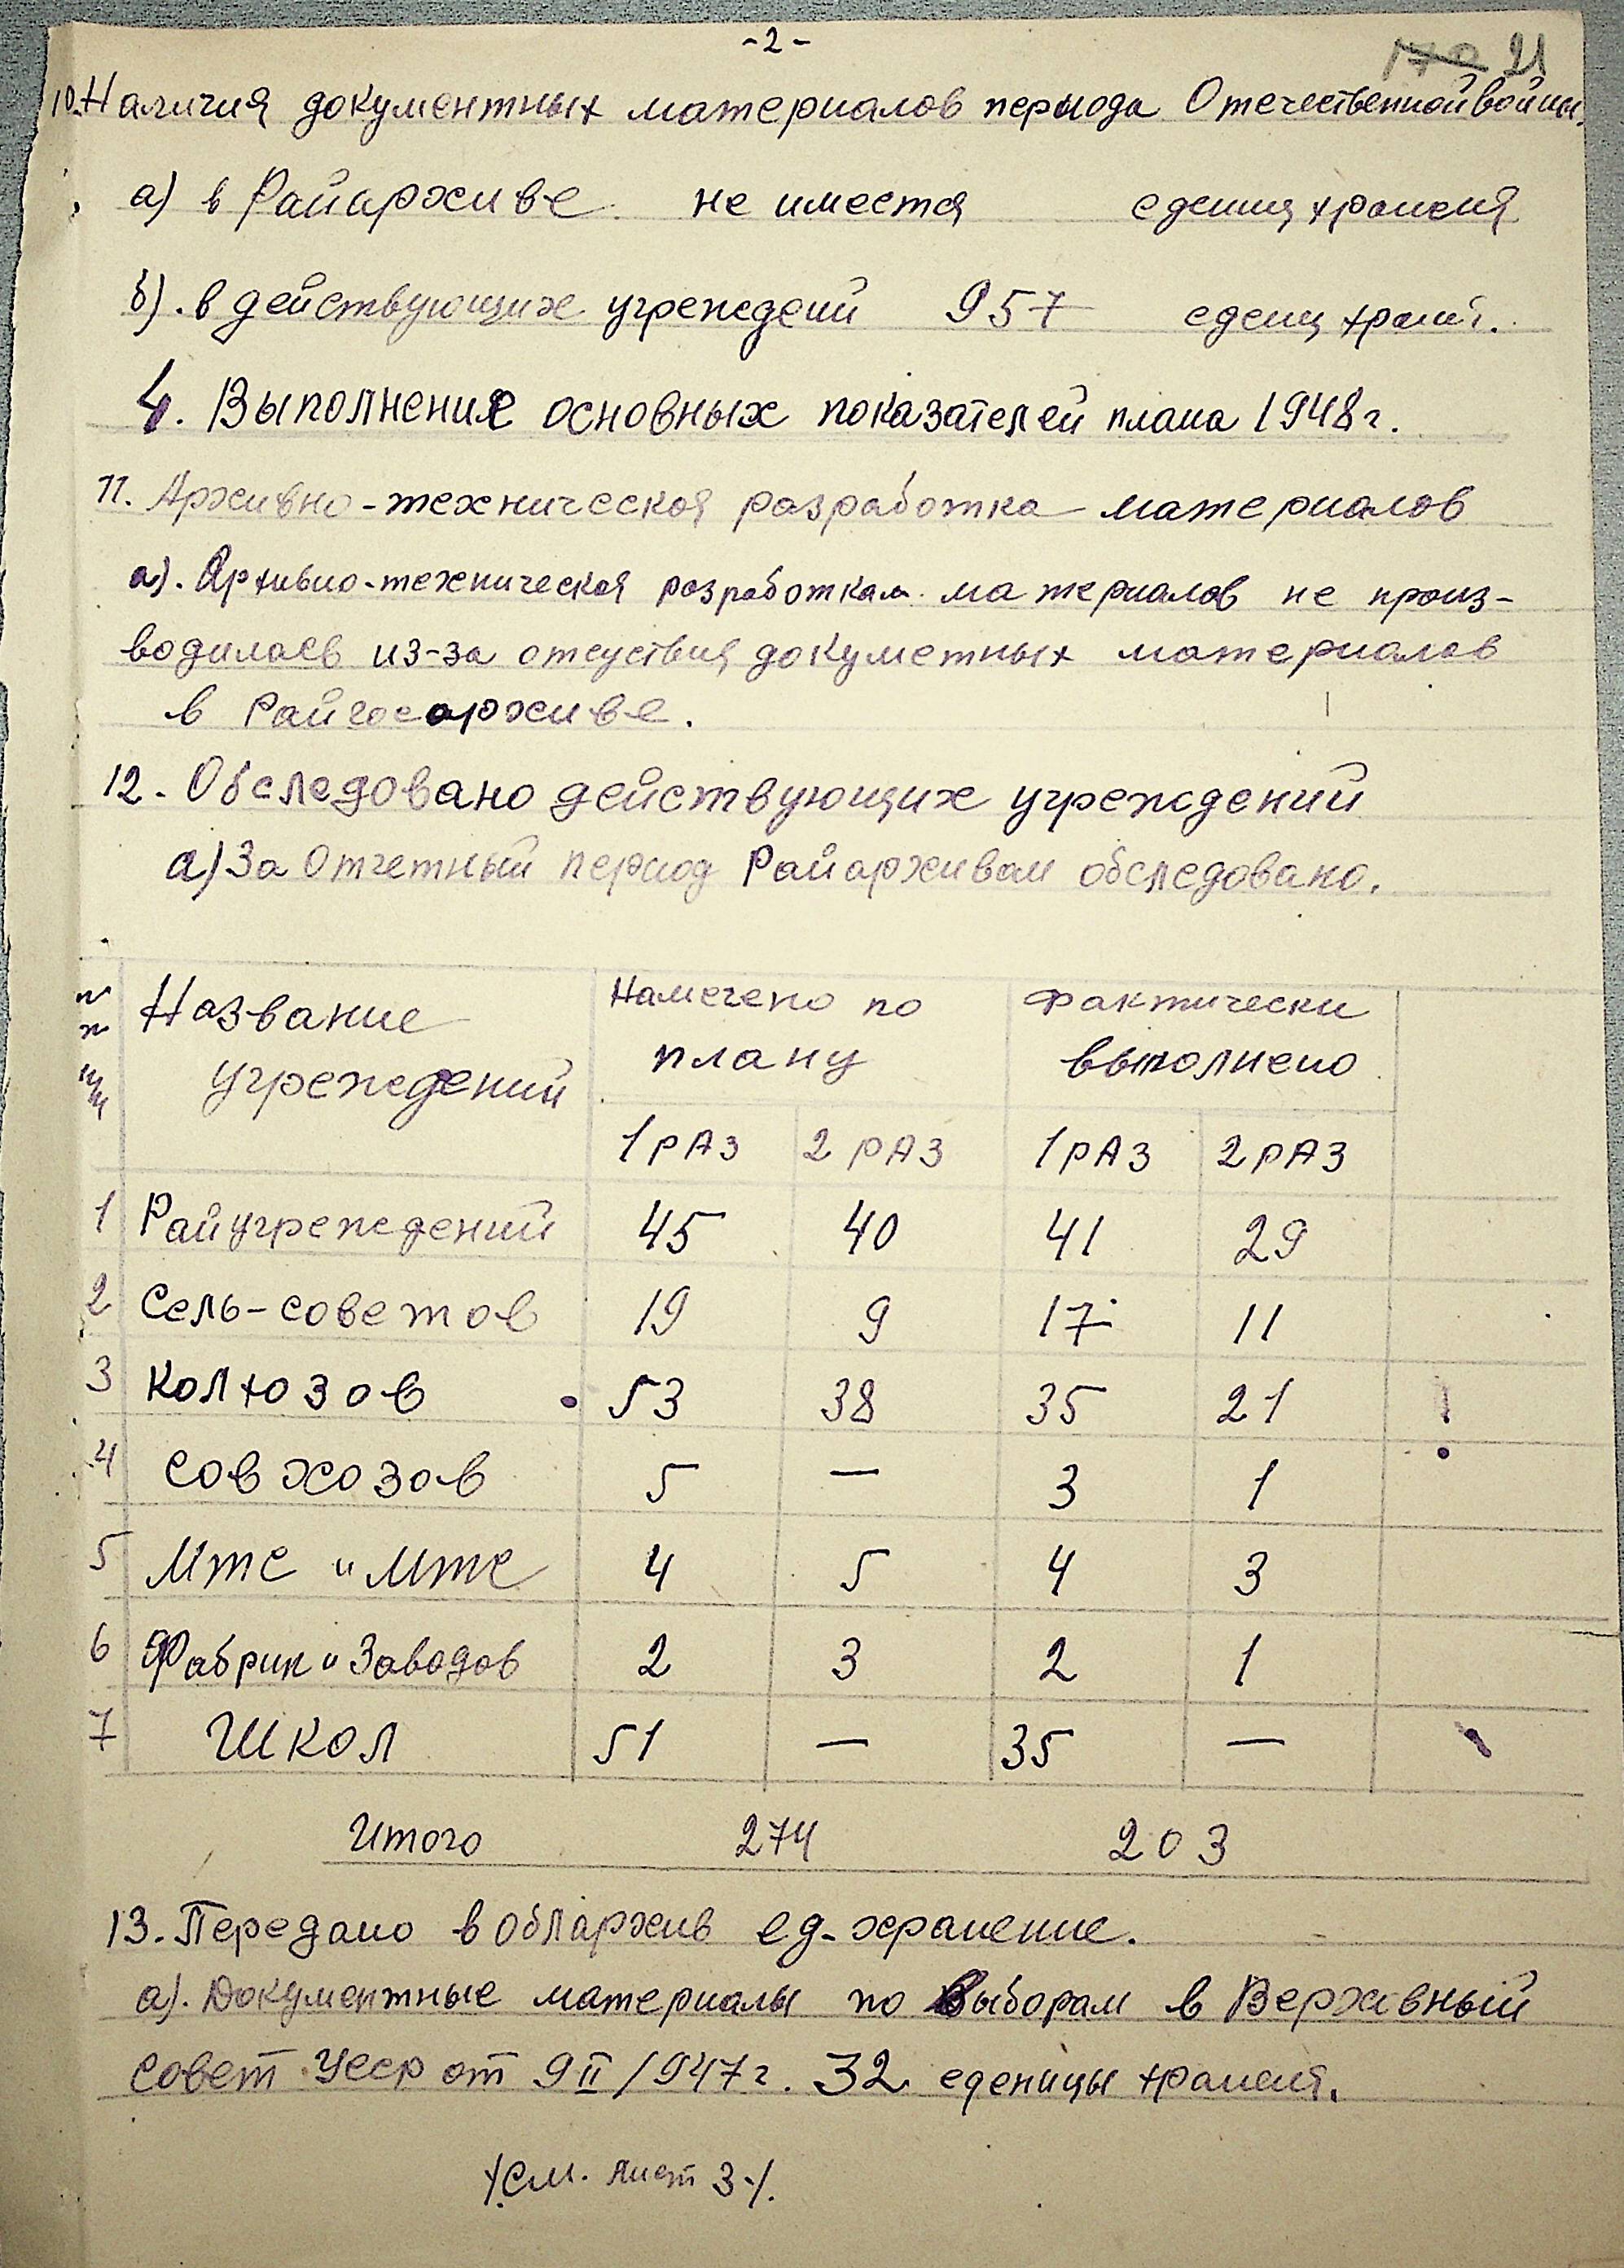 -2-
170 21
10. Наличия документных материалов периода Отечественной войны.
а) в Райархиве не имеется едениц хранения
б). в действующих учреждений 957 едениц хранен.
4. Выполнения основных показателей плана 1948 г.
11. Архивно-техническая разработка материалов
а). Архивно-техническая разработкам материалов не произ-
водилась из-за отсуствия документных материалов
в Райгосархиве.
12. Обследовано действующих учреждений
а) За Отчетный период Райархивам обследовано.
Название учреждений Намечено по плану Фактически выполнено
1 РАЗ 2 РАЗ 1 РАЗ 2 РАЗ
1 Райучреждений 45 40 41 29
2 Сель-советов 19 9 17 11
3 Колхозов 53 38 35 21 !
4 Совхозов 5 — 3 1
5 Мтс и Мтс 4 5 4 3
6 Фабрик и Заводов 2 3 2 1
7 Школ 51 — 35 —
Итого 274 203
13. Передано в облархив ед-хранение.
а). Документные материалы по Выборам в Верховный
совет Усср от 9 II 1947 г. 32 еденицы хранения.
/См. лист 3./.